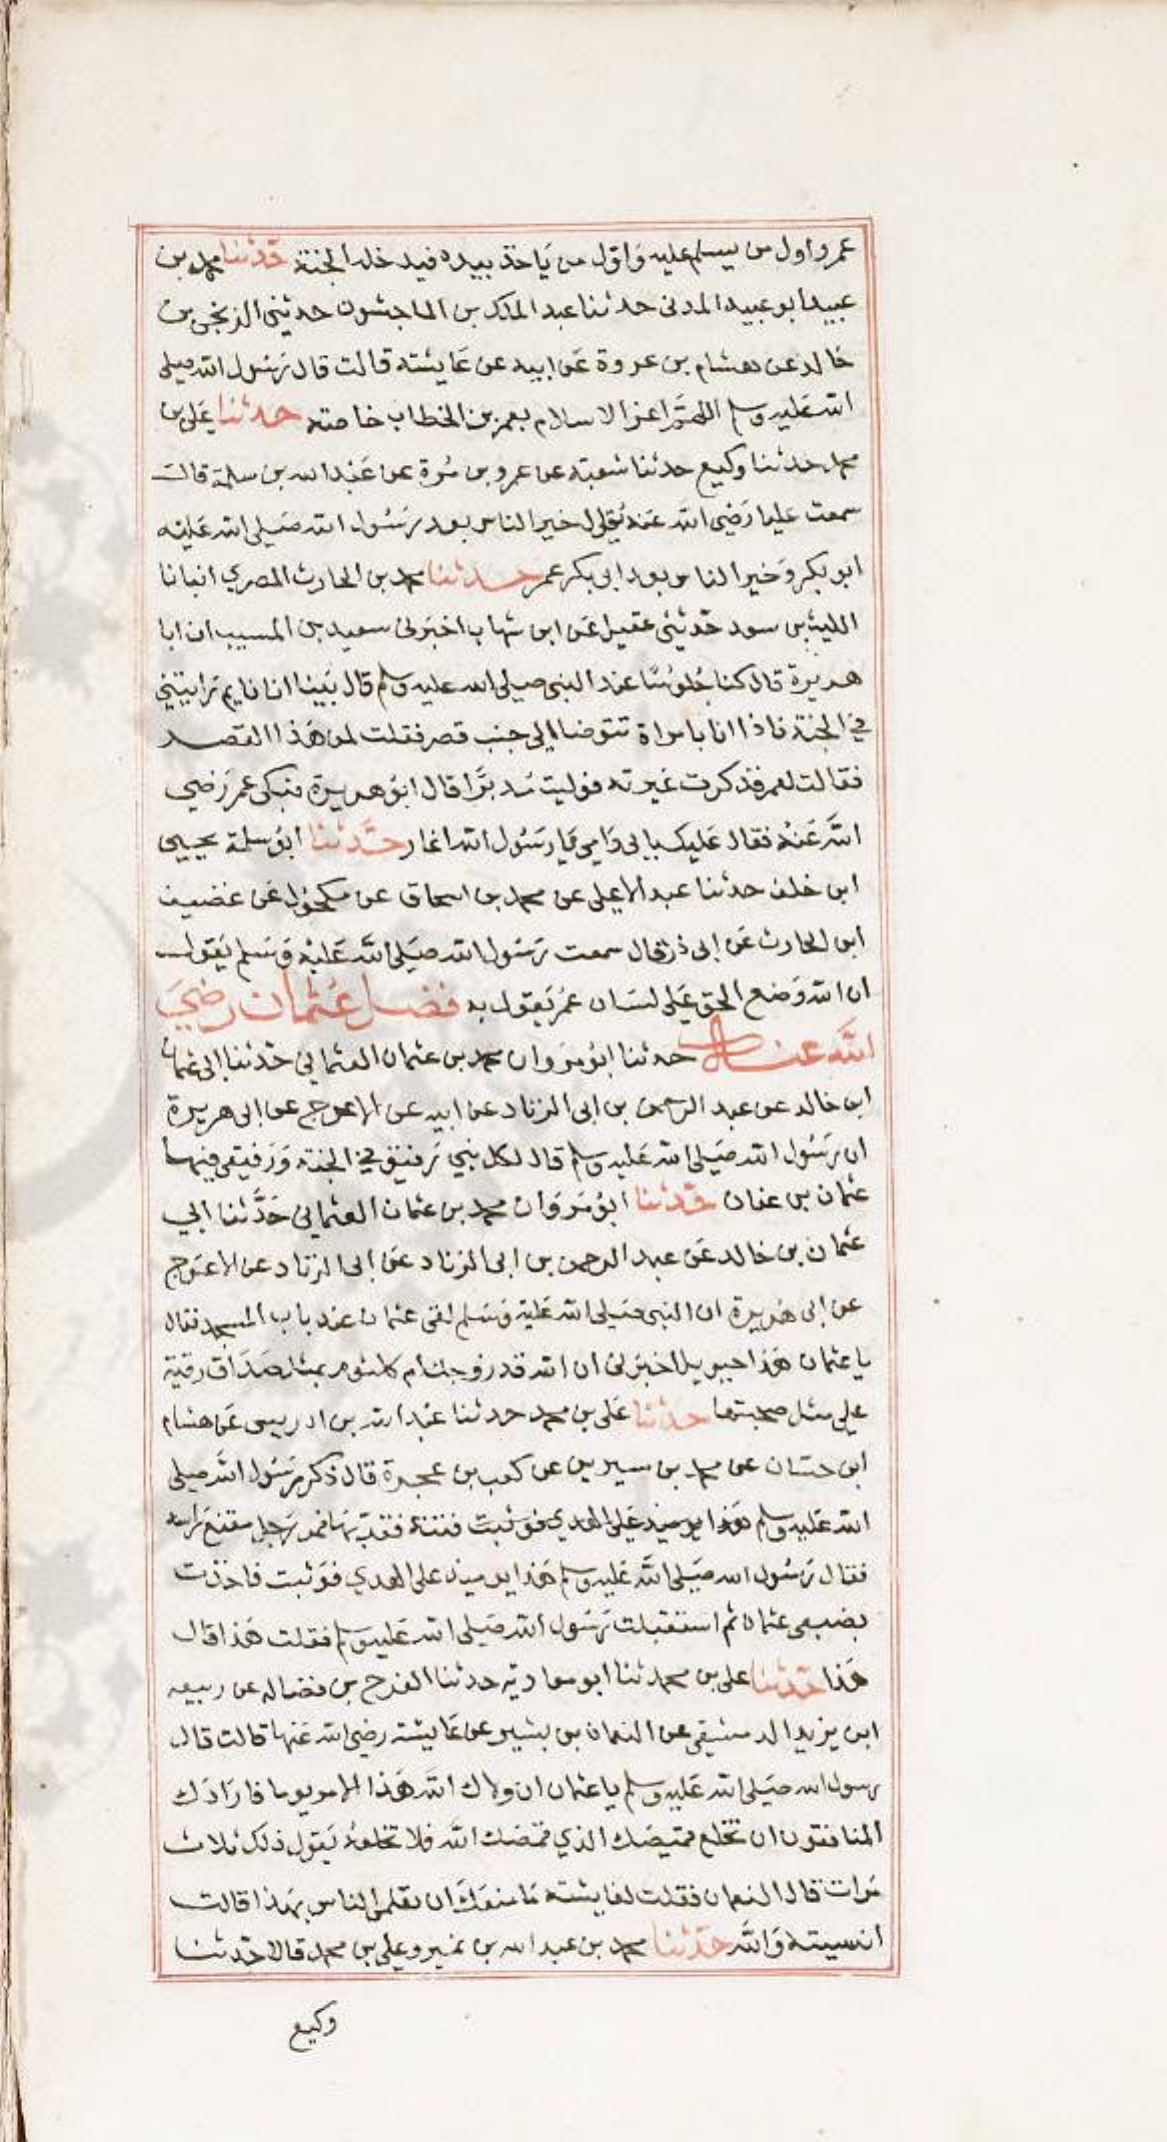 عمر واول من يسلم عليه وَاوّل من يَاخذ بيده فيدخله الجنة حَدثنا محمد بن
عبيد ابو عبيد المدنى حدثنا عبد الملك بن الماجشون حدثنى الزنجى بن
خالد عن هشام بن عروة عَن ابيه عن عَايشته قالت قال رَسُول الله صلى
الله عَليه وسلم اللهمَّ اعز الاسلام بعمر بن الخطاب خاصته حدثنا عَلى بن
محمد حدثنا وكيع حدثنا شعبته عن عمرو بن مُرة عن عَبْد الله بن سلمة قالت
سمعت عليا رَضي الله عَنه يَقول خير الناس بعد رسُول الله صَلى الله عَليْه
ابو بكر وَخير الناس بعد ابى بكر عمر حدثنا محمد بن الحارث المصري انبانا
الليث بن سعد حَدثنى عقيل عَن ابن شهاب اخبَرنى سعيد بن المسيب ان ابا
هريرة قال كنا جُلوسًا عند النبى صلى الله عليه وسلم قال بَينا انا نايم رَايتنى
في الجنة فاذا انا بامراة تتوضا الى جنب قصر فقلت لمن هَذا القصر
فقالت لعمر فذكرت غيرته فوليت مُدبرًا قال ابُو هريرة فبكى عمر رَضي
اللَّه عَنْه فقال عَليك بابى وَامي يَا رسُول الله اغار حدَّثنا ابُو سلمة يحيى
ابن خلف حدثنا عبد الاعلى عن محمد بن اسحاق عن مكحُول عَن غضيف
ابن الحارث عَن ابى ذر قال سمعت رَسُول الله صَلى اللَّه عَليْه وَسَلم يَقول
ان الله وَضع الحق عَلى لسَان عمُر يَقول به فضل عُثمان رضيَ
اللَّه عنه حدثنا ابُو مروان محمد بن عثمان العثماني حَدثنا ابى عثمان
ابن خالد عن عبد الرحمن بن ابى الزناد عن ابيه عن الاعرج عن ابى هريرة
ان رَسُول الله صَلى الله عَليه وسلم قال لكل نبي رَفيق في الجنة وَرَفيقي فيها
عثمان بن عفان حَدثنا ابُو مَروَان محمد بن عثمان العثمانى حَدَّثنا ابي
عثمان بن خالد عَن عبد الرحمن بن ابى الزناد عَن ابى الزناد عن الاعرَج
عن ابى هُريرة ان النبى صَلى الله عَليْه وَسَلم لقى عثمان عند باب المسجد فقال
يا عثمان هَذا جبريل اخبَرنى ان الله قد زوجك ام كلثوم بمثل صَدَاق رقية
على مثل صحبتها حدثنا عَلى بن محمد حدثنا عَبد الله بن ادريس عَن هشام
ابن حسَان عن محمد بن سيرين عن كعب بن عجرة قال ذكر رَسُول اللَّه صلى
الله عَليه وسلم هَذا يوميذ عَلى الهدي فوثبت فتنة فقربها فمر رَجل مقنع رَاسه
فقال رَسُول الله صَلى اللَّه عَليه وسلم هَذا يوميذ على الهدي فوَثبت فاخذت
بضبعى عثمان ثم استقبلت رَسُول الله صَلى الله عَليه وسلم فقلت هَذا قال
هَذا حَدثنا على بن محمد ثنا ابو معاوية حدثنا الفرج بن فضاله عن ربيعه
ابن يزيد الدمشقي عن النعمان بن بشير عن عَايشته رضى الله عَنها قالت قال
رسول الله صَلى الله عَليه وسلم يا عثمان ان ولاك اللَّه هَذا الامر يوما فارَادَك
المنافقون ان تخلع قميصَك الذي قمصك اللَّه فلا تخلعهُ يَقول ذلك ثلاث
مَرات قال النعمان فقلت لعَايشته مَا منعَك ان تعلمى الناس بهَذا قالت
انسيته وَاللَّه حَدثنا محمد بن عبد الله بن نمير وعلى بن محمد قالا حَدثنا
وكيع